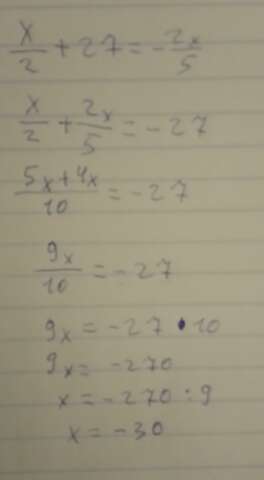 x/2 + 27 = -2x/5
x/2 + 2x/5 = -27
5x+4x/10 = -27
9x/10 = -27
9x = -27 • 10
9x = -270
x = -270 : 9
x = -30